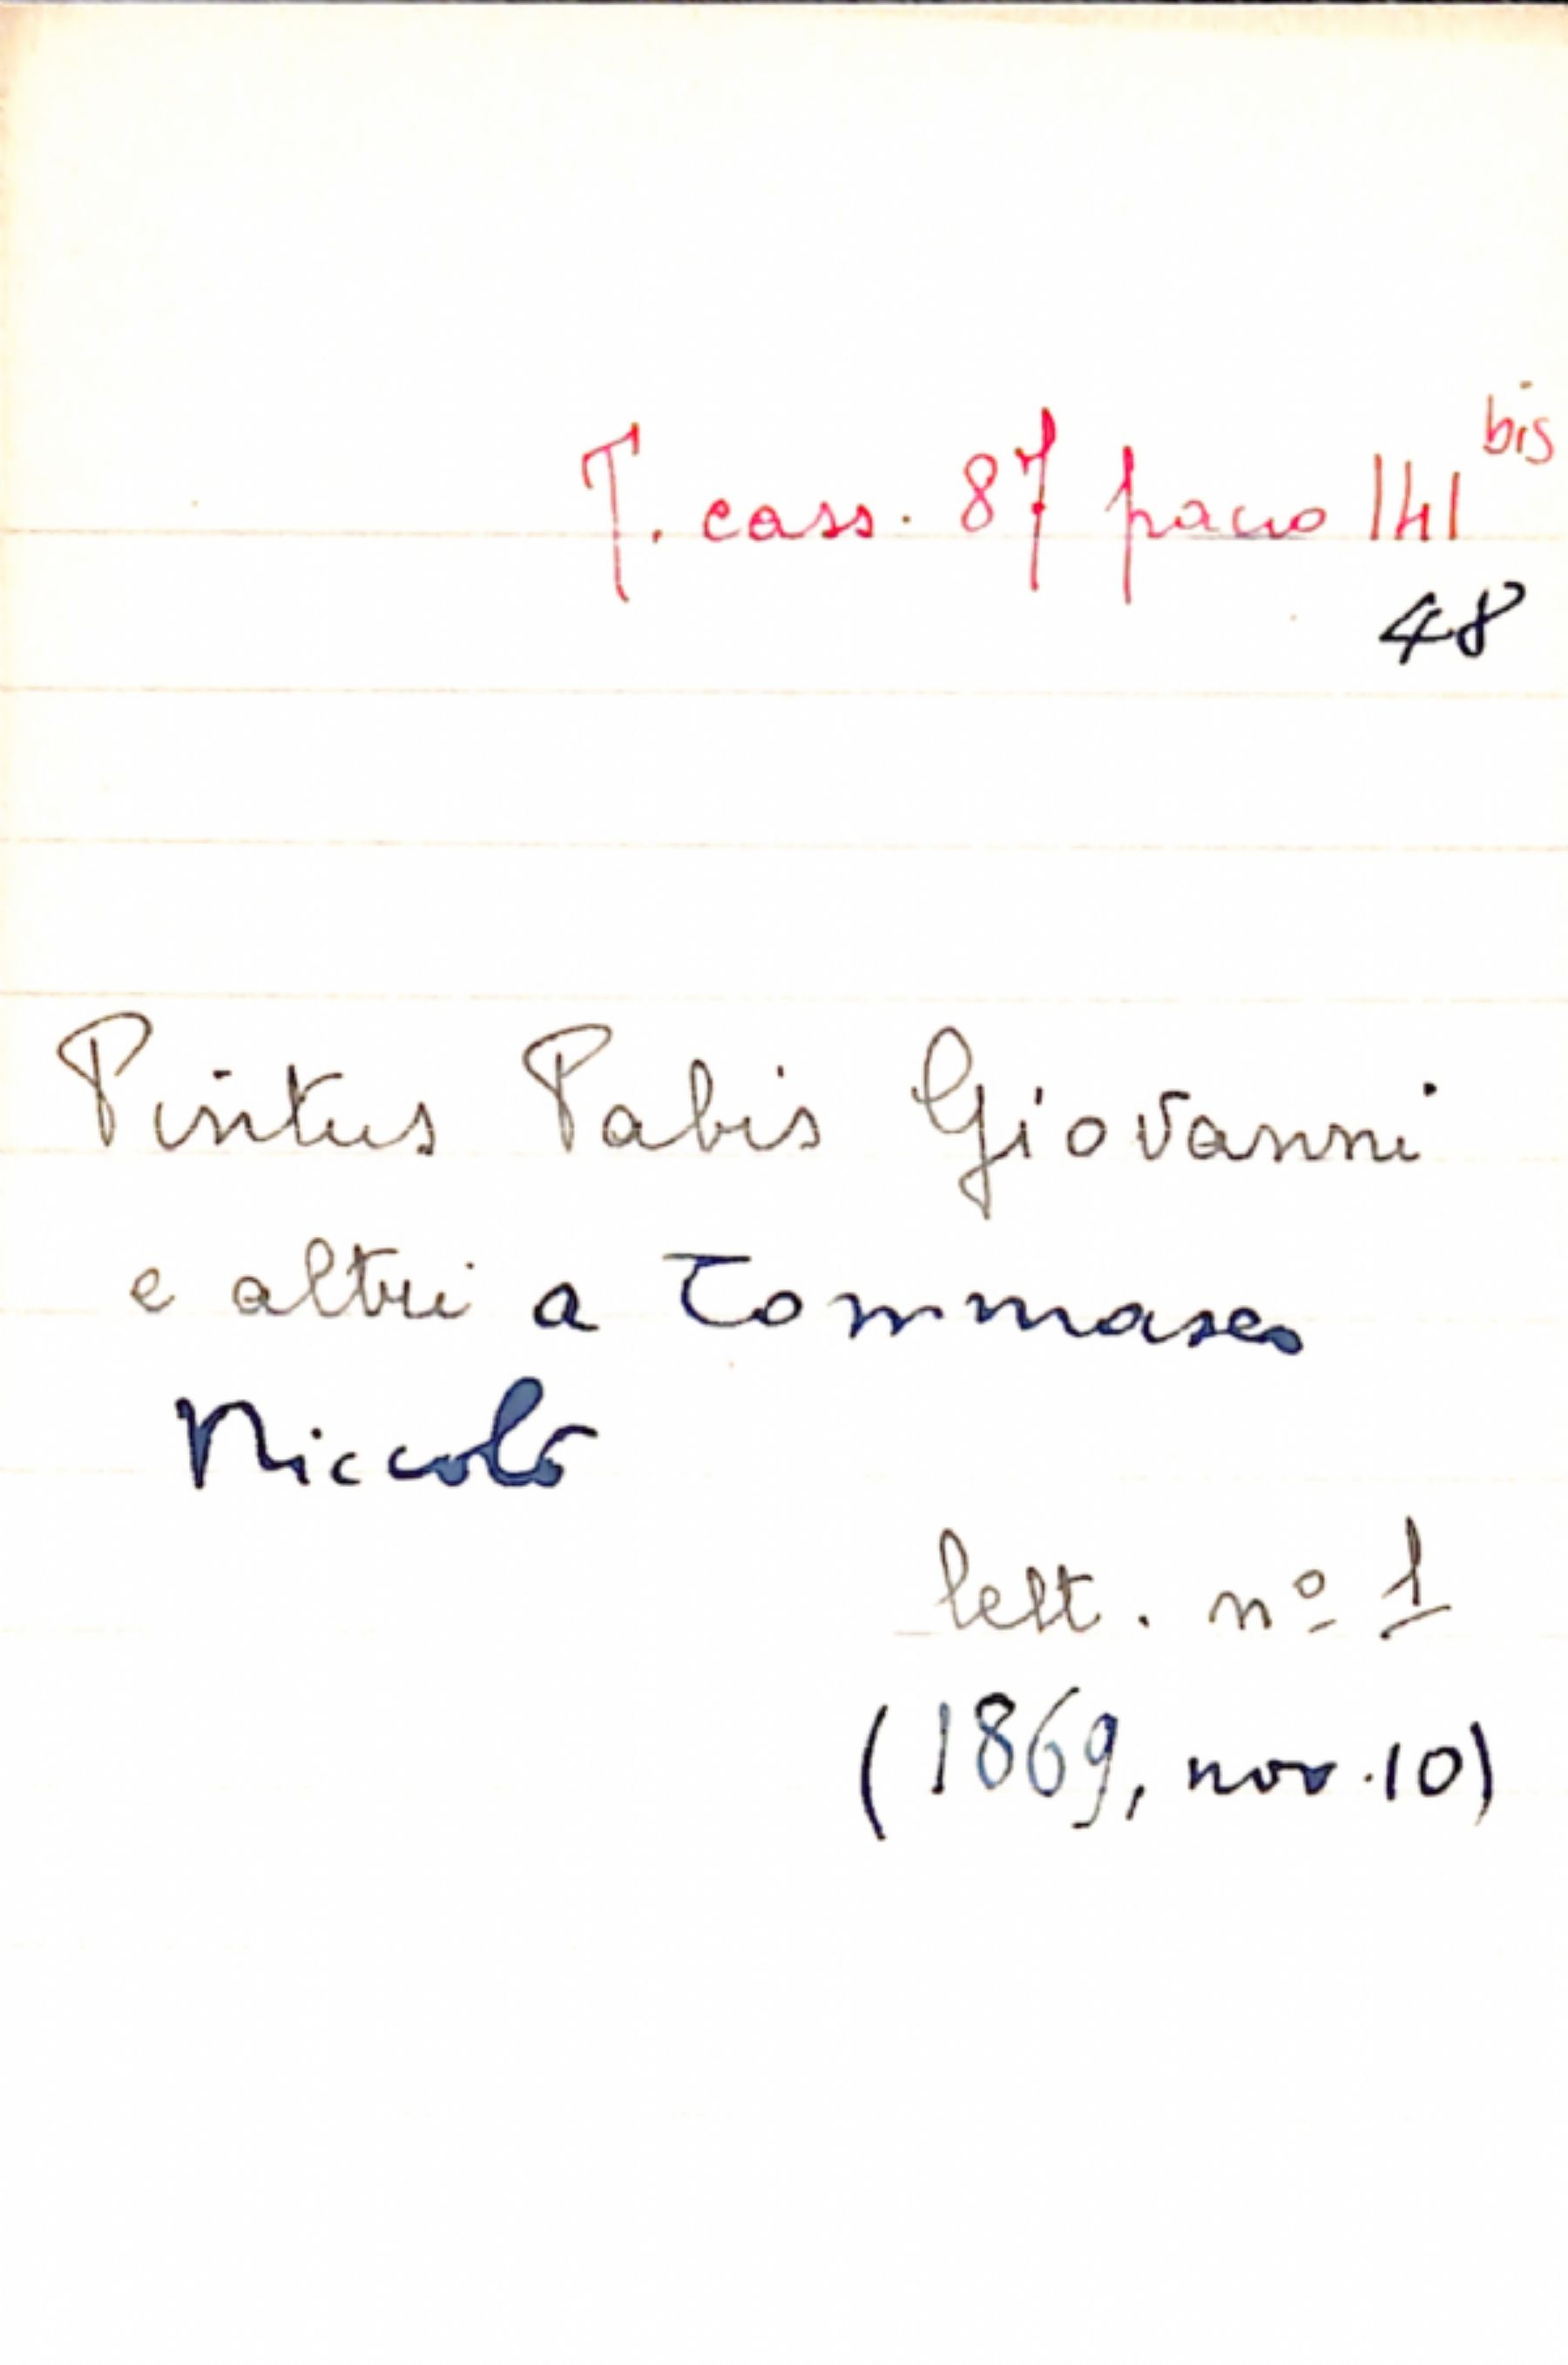 T. cass. 87 pacco 141 bis
48
Pintus Pabis Giovanni
e altri a Tommaseo
Niccolò
lett. nº 1
(1869, nov. 10)